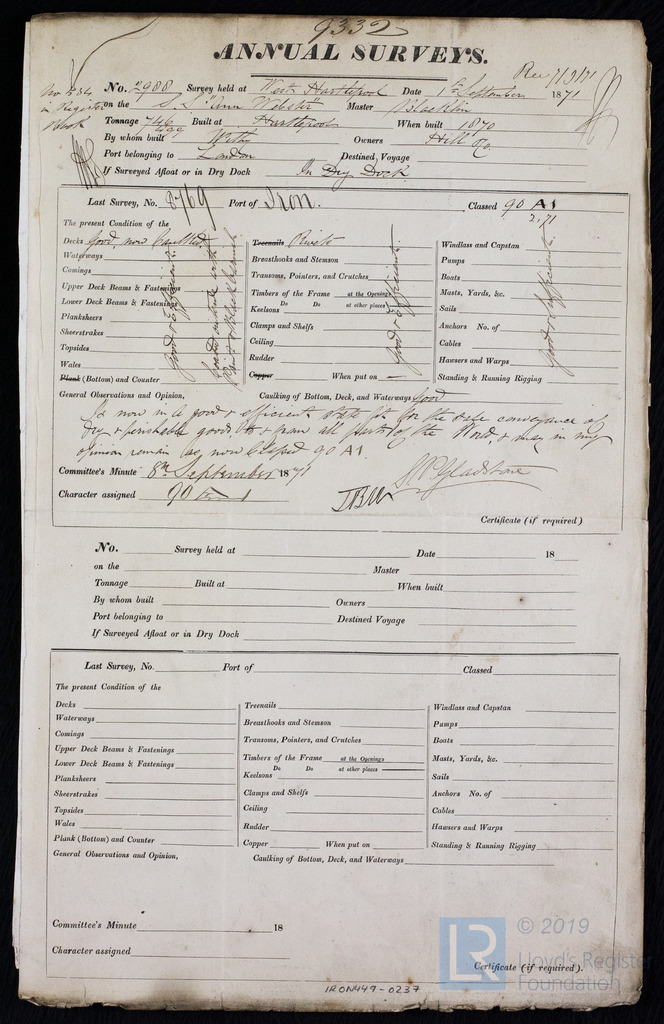 9332
ANNUAL SURVEYS.
Rec 7/9/71
No. 2988 Survey held at West Hartlepool Date 1st September 1871
in Register Book
on the S.S. "Ann Webster" Master Blacklin
Tonnage 746 499 Built at Hartlepool When built 1870
By whom built Withy Owners Hill & Co.
Port belonging to London Destined Voyage
If Surveyed Afloat or in Dry Dock In Dry Dock
Last Survey, No. 8769 Port of Iron. Classed 90 A1 2.71
The present Condition of the
Decks good, now caulked
Waterways
Comings
Upper Deck Beams & Fastenings
Lower Deck Beams & Fastenings
Planksheers
Sheerstrakes
Topsides
Wales
Plank (Bottom) and Counter
Good & Efficient
Coated outside with Paint & Black
Treenails Rivets
Breasthooks and Stemson
Transoms, Pointers, and Crutches
Timbers of the Frame at the Openings
Do Do at other places
Keelsons
Clamps and Shelfs
Ceiling
Rudder
Copper When put on
Good & Efficient
Windlass and Capstan
Pumps
Boats
Masts, Yards, &c.
Sails
Anchors No. of
Cables
Hawsers and Warps
Standing & Running Rigging
Good & Sufficient
General Observations and Opinion, Caulking of Bottom, Deck, and Waterways Good
Is now in a good & efficient state fit for the safe conveyance of
dry & perishable goods to & from all parts of the World, & may in my
opinion remain as now classed 90 A1.
Committee's Minute 8th September 1871
Character assigned 90 A 1
Certificate (if required)
No. Survey held at Date 18
on the Master
Tonnage Built at When built
By whom built Owners
Port belonging to Destined Voyage
If Surveyed Afloat or in Dry Dock
Last Survey, No. Port of Classed
The present Condition of the
Decks
Waterways
Comings
Upper Deck Beams & Fastenings
Lower Deck Beams & Fastenings
Planksheers
Sheerstrakes
Topsides
Wales
Plank (Bottom) and Counter
Treenails
Breasthooks and Stemson
Transoms, Pointers, and Crutches
Timbers of the Frame at the Openings
Do Do at other places
Keelsons
Clamps and Shelfs
Ceiling
Rudder
Copper When put on
Windlass and Capstan
Pumps
Boats
Masts, Yards, &c.
Sails
Anchors No. of
Cables
Hawsers and Warps
Standing & Running Rigging
General Observations and Opinion, Caulking of Bottom, Deck, and Waterways
Committee's Minute 18
Character assigned
Certificate (if required).
LR © 2019
Lloyd's Register
Foundation
IRON449-0237